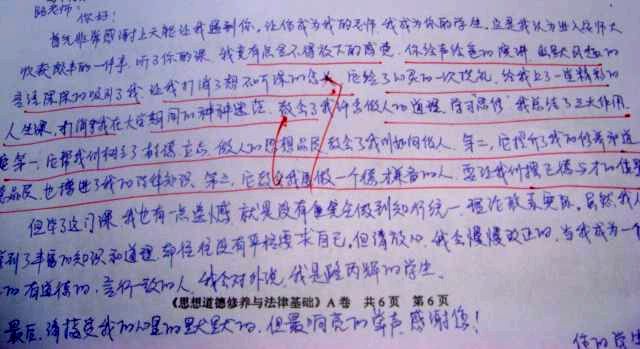 陆老师：
你好！
首先非常感谢上天能让我遇到你，让你成为我的老师，我成为你的学生，这是我认为进入师大
收获最丰的一件事。听了你的课，我竟有点舍不得放下的感觉。你绘声绘色的演讲
言语深深的吸引了我，让我打消了想不听课的念头，它给了心灵的一次洗礼，给我上了一堂精彩的
人生课，打消了我在大学期间的种种迷茫，教会了我们去做人的道理。学习"思修"我总结了三大作用。
第一，它帮我们树立了，做人的思想品民教会了我们如何做人。第二，它提升了我的修养和道
德品民，也增进了我的法律知识。第三，它教会我要做一个德才兼备的人，要让我们拥
但学了这门课，我也有一点遗憾，就是没有完全做到知行统一，理论联系实际。虽然我
学到了丰富的知识和道理，却往往没有严格要求自己，但请放心，我会慢慢改正的，当我成为一个
有道德的，言行一致的人，我会对外说，我是陆丙辉的学生。
《思想道德修养与法律基础》A卷 共6页 第6页
最后，请接受我的心里的默默的，但最响亮的掌声，感谢您！
你的学生